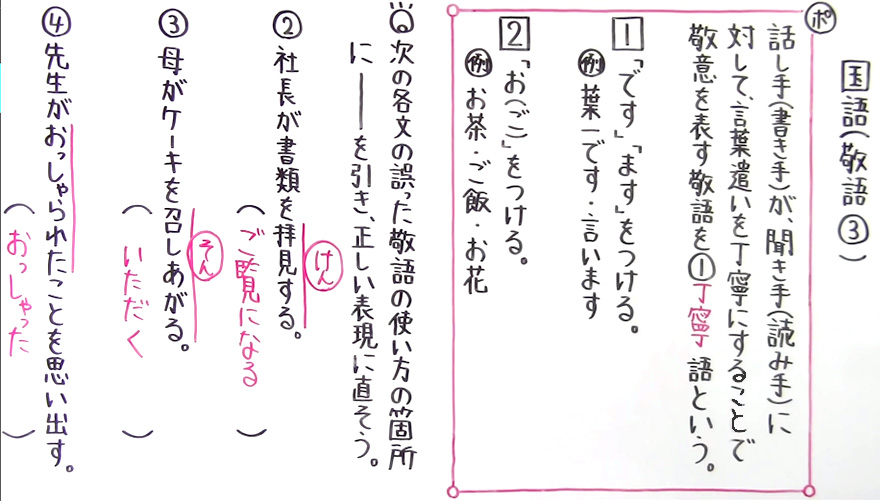 国語(敬語③)
ポ
話し手(書き手)が、聞き手(読み手)に
対して、言葉遣いを丁寧にすることで
敬意を表す敬語を①丁寧語という。
1 「です」「ます」をつける。
例 葉一です・言います
2 「お(ご)」をつける。
例 お茶・ご飯・お花
次の各文の誤った敬語の使い方の箇所
に――を引き、正しい表現に直そう。
②社長が書類を拝見する。
けん
(ご覧になる)
③母がケーキを召しあがる。
そん
(いただく)
④先生がおっしゃられたことを思い出す。
(おっしゃった)